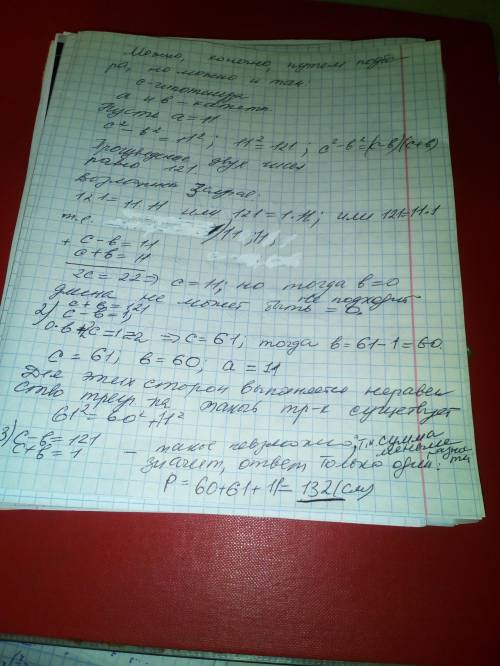 Можно, конечно, путем подбо-
ра, но можно и так
c-гипотенуза
a и b - катеты
Пусть a = 11
c² - b² = 11²; 11² = 121; c² - b² = (c-b)(c+b)
Произведение двух чисел
равно 121.
Возможны 3 случая:
121 = 11·11 или 121 = 1·11; или 121=11·1
т.е.
+ c-b = 11
c+b = 11
2c = 22 => c = 11; но тогда b = 0 не подходит
длина не может быть = 0.
2) c+b = 121
c-b = 1;
=> c = 61, тогда b = 61-1 = 60.
c = 61; b = 60; a = 11
Для этих сторон выполняется неравен
ство треуг-ка такой тр-к существует
61² = 60² + 11²
3) c-b = 121
c+b = 1 - такое невозможно, т.к сумма меньше разности
значит, ответ только один:
P = 60+61+11 = 132 (см)